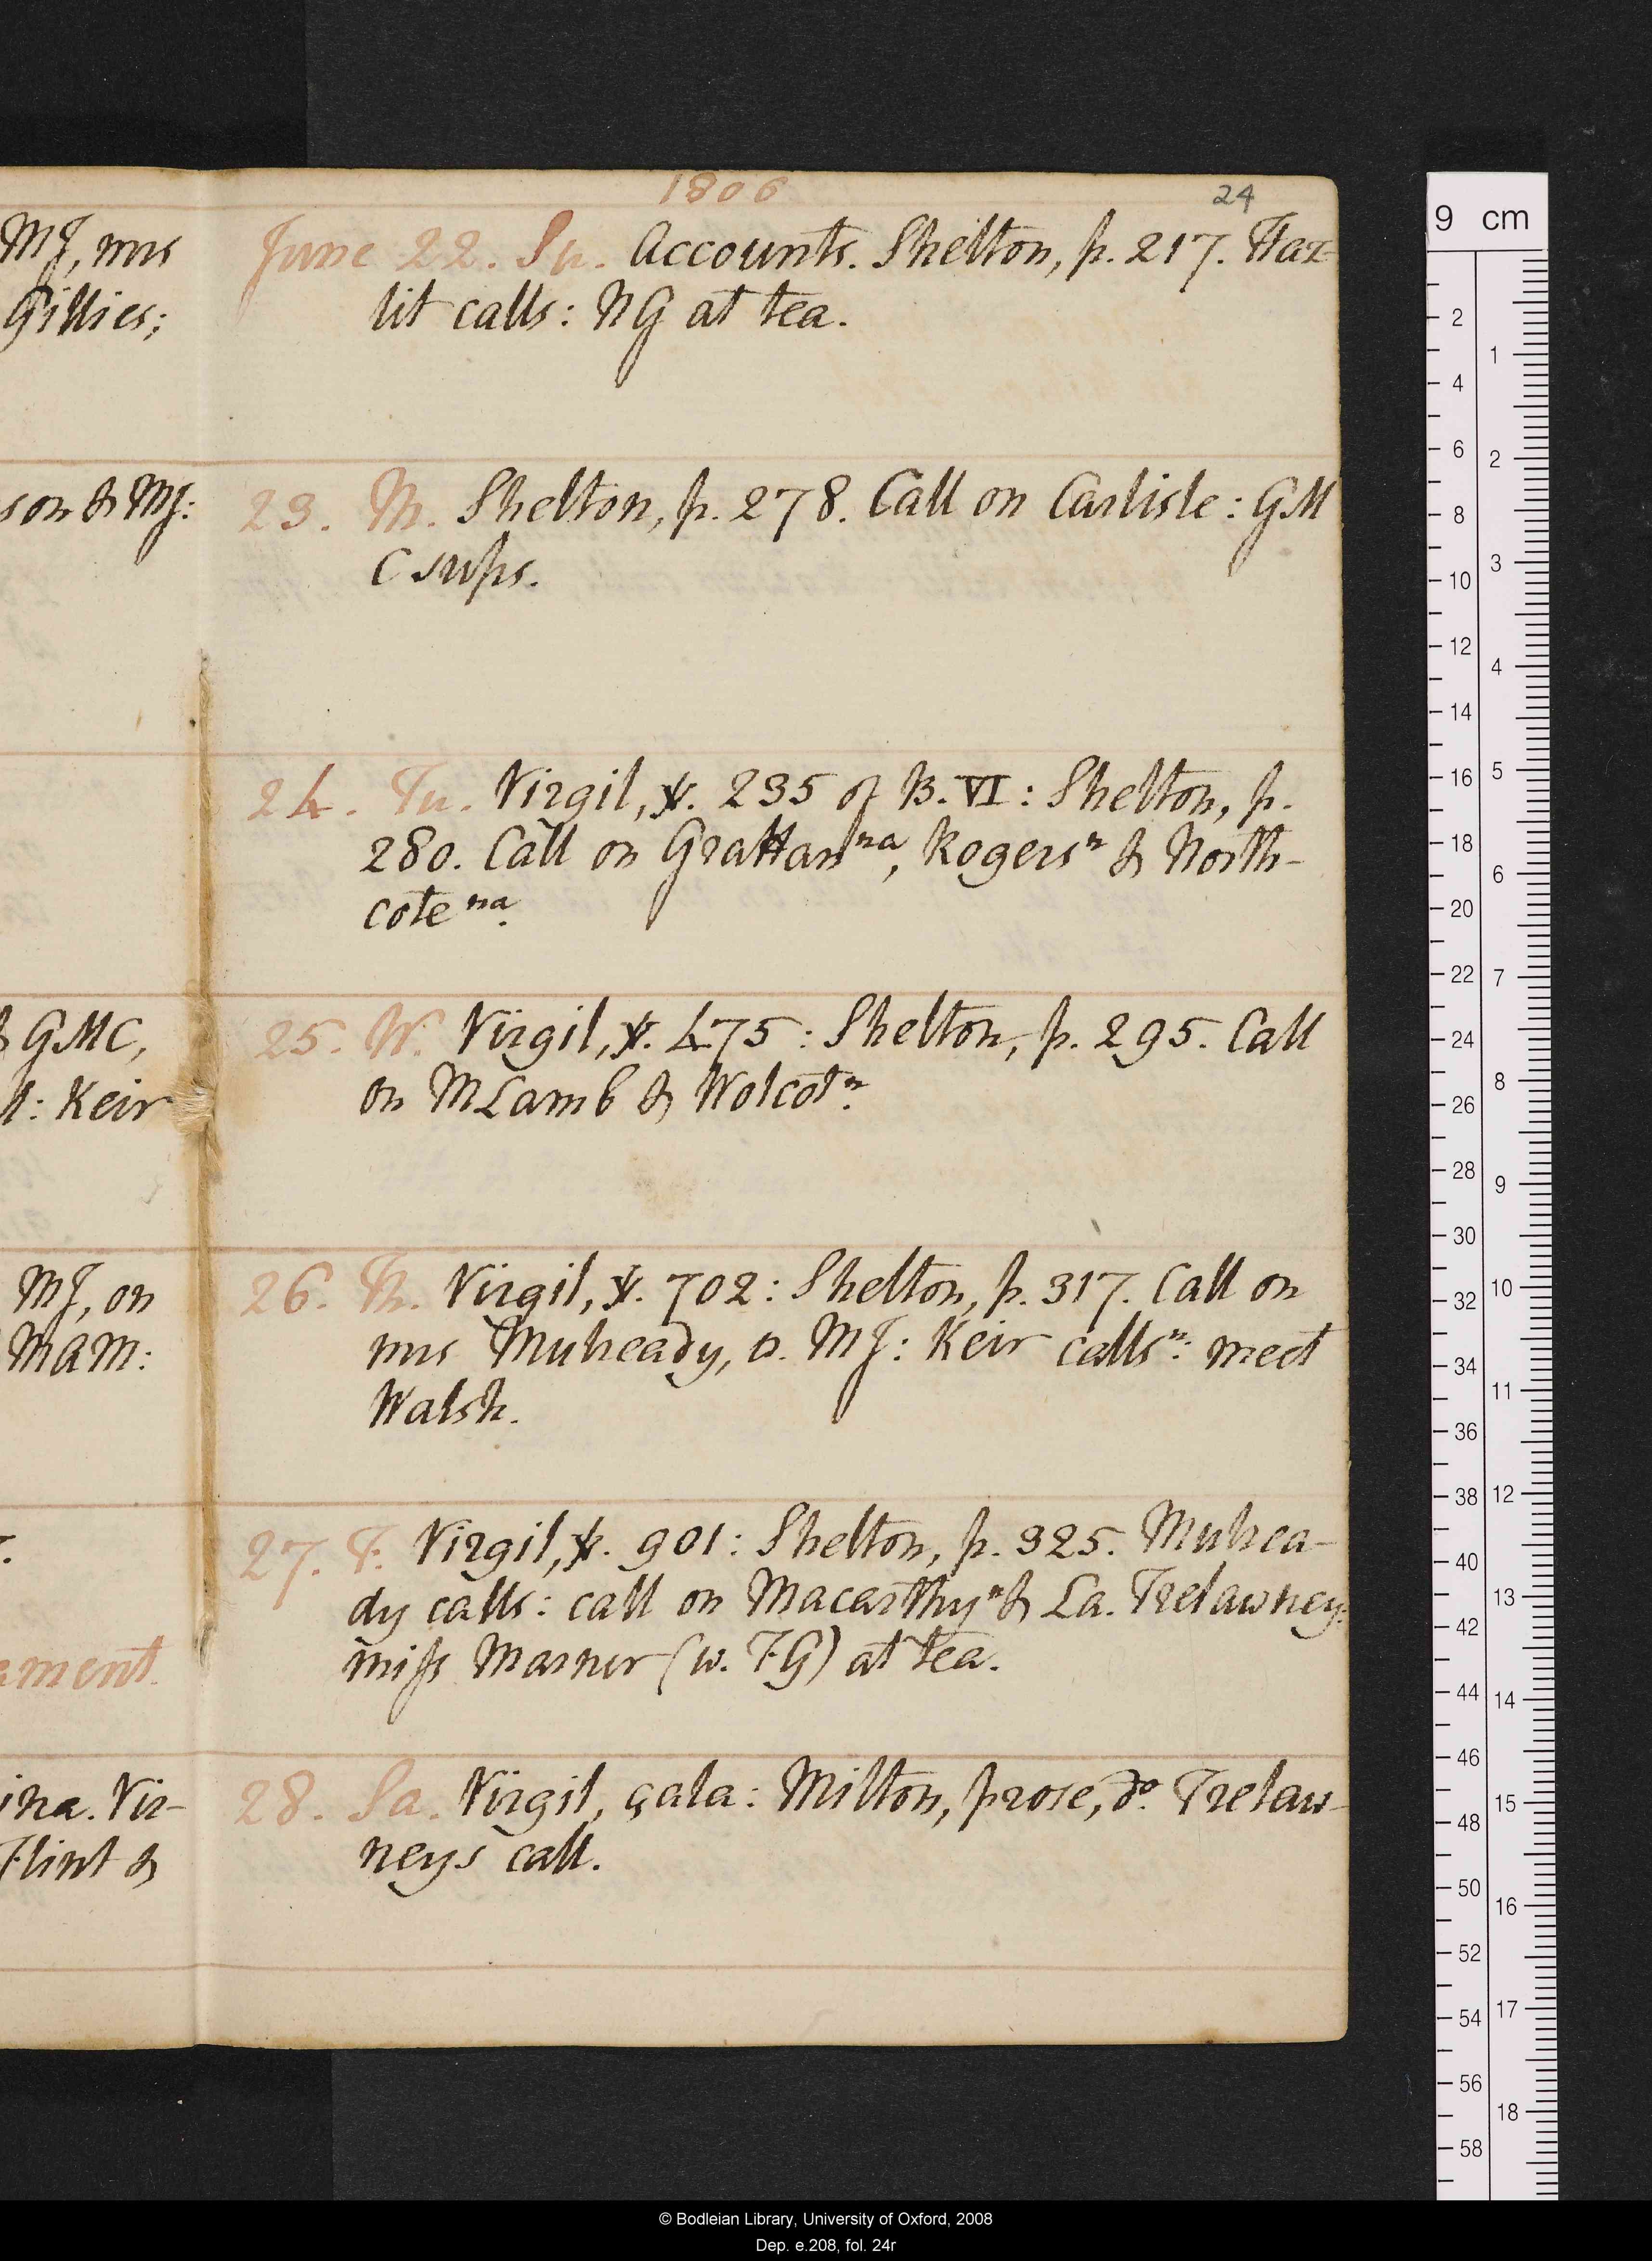 1806
24
MJ, mrs
Gillies;
son & MJ:
& GMC,
Keir
MJ, on
MAM:
ament.
ina. Vir-
Flint &
June 22. Su. Accounts. Shelton, p. 217. Haz-
lit calls: NG at tea.
23. M. Shelton, p. 278. Call on Carlisle: GM
C sups.
24. Tu. Virgil, ꝟ. 235 of B. VI: Shelton, p.
280. Call on Grattan na, Rogers n & North-
cote na.
25. W. Virgil, ꝟ. 475: Shelton, p. 295. Call
on MLamb & Wolcot n.
26. Th. Virgil, ꝟ. 702: Shelton, p. 317. Call on
mrs Muheady, o. MJ: Keir calls n: meet
Walsh.
27. F. Virgil, ꝟ. 901: Shelton, p. 325. Muhea-
dy calls: call on Macarthy n & La. Trelawney:
miss Marner (w. FG) at tea.
28. Sa. Virgil, çala: Milton, prose, do. Trelaw-
neys call.
9 cm
2
4
6
8
10
12
14
16
18
20
22
24
26
28
30
32
34
36
38
40
42
44
46
48
50
52
54
56
58
1
2
3
4
5
6
7
8
9
10
11
12
13
14
15
16
17
18
© Bodleian Library, University of Oxford, 2008
Dep. e.208, fol. 24r